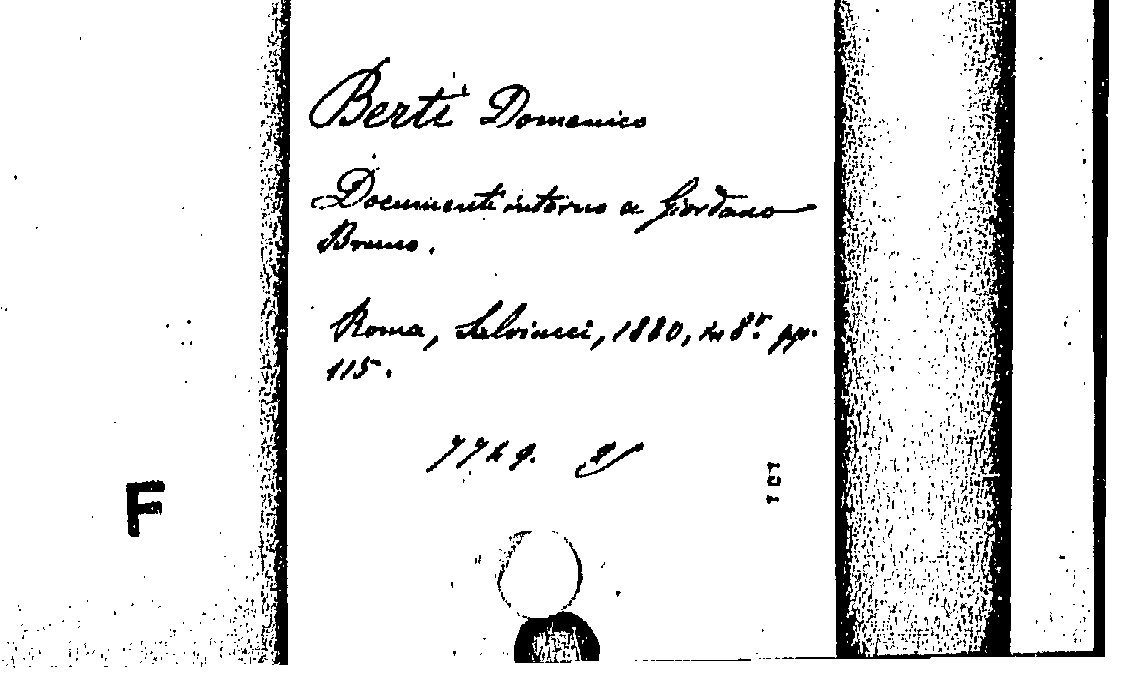 Berti Domenico
Documenti intorno a Giordano
Bruno.
Roma, Salviucci, 1880, in 8º. pp.
115.
F